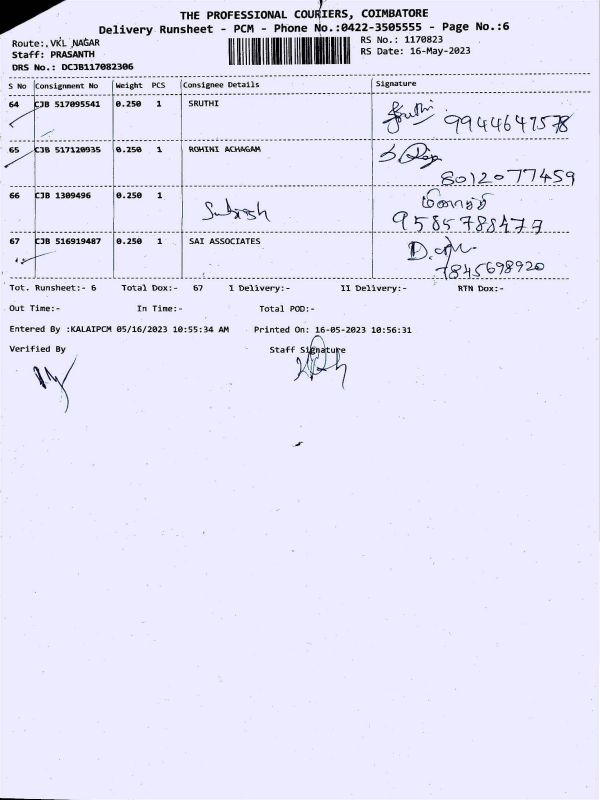 THE PROFESSIONAL COURIERS, COIMBATORE
Delivery Runsheet - PCM - Phone No.:0422-3505555 - Page No.:6
Route:.VKL NAGAR
RS No.: 1170823
Staff: PRASANTH
RS Date: 16-May-2023
DRS No.: DCJB117082306
S No Consignment No Weight PCS Consignee Details Signature
64 CJB 517095541 0.250 1 SRUTHI Sruthi 9944647578
65 CJB 517120935 0.250 1 ROHINI ACHAGAM
8012077459
66 CJB 1309496 0.250 1
9585788477
67 CJB 516919487 0.250 1 SAI ASSOCIATES
7845698920
Tot. Runsheet:- 6 Total Dox:- 67 I Delivery:- II Delivery:- RTN Dox:-
Out Time:- In Time:- Total POD:-
Entered By :KALAIPCM 05/16/2023 10:55:34 AM Printed On: 16-05-2023 10:56:31
Verified By Staff Signature